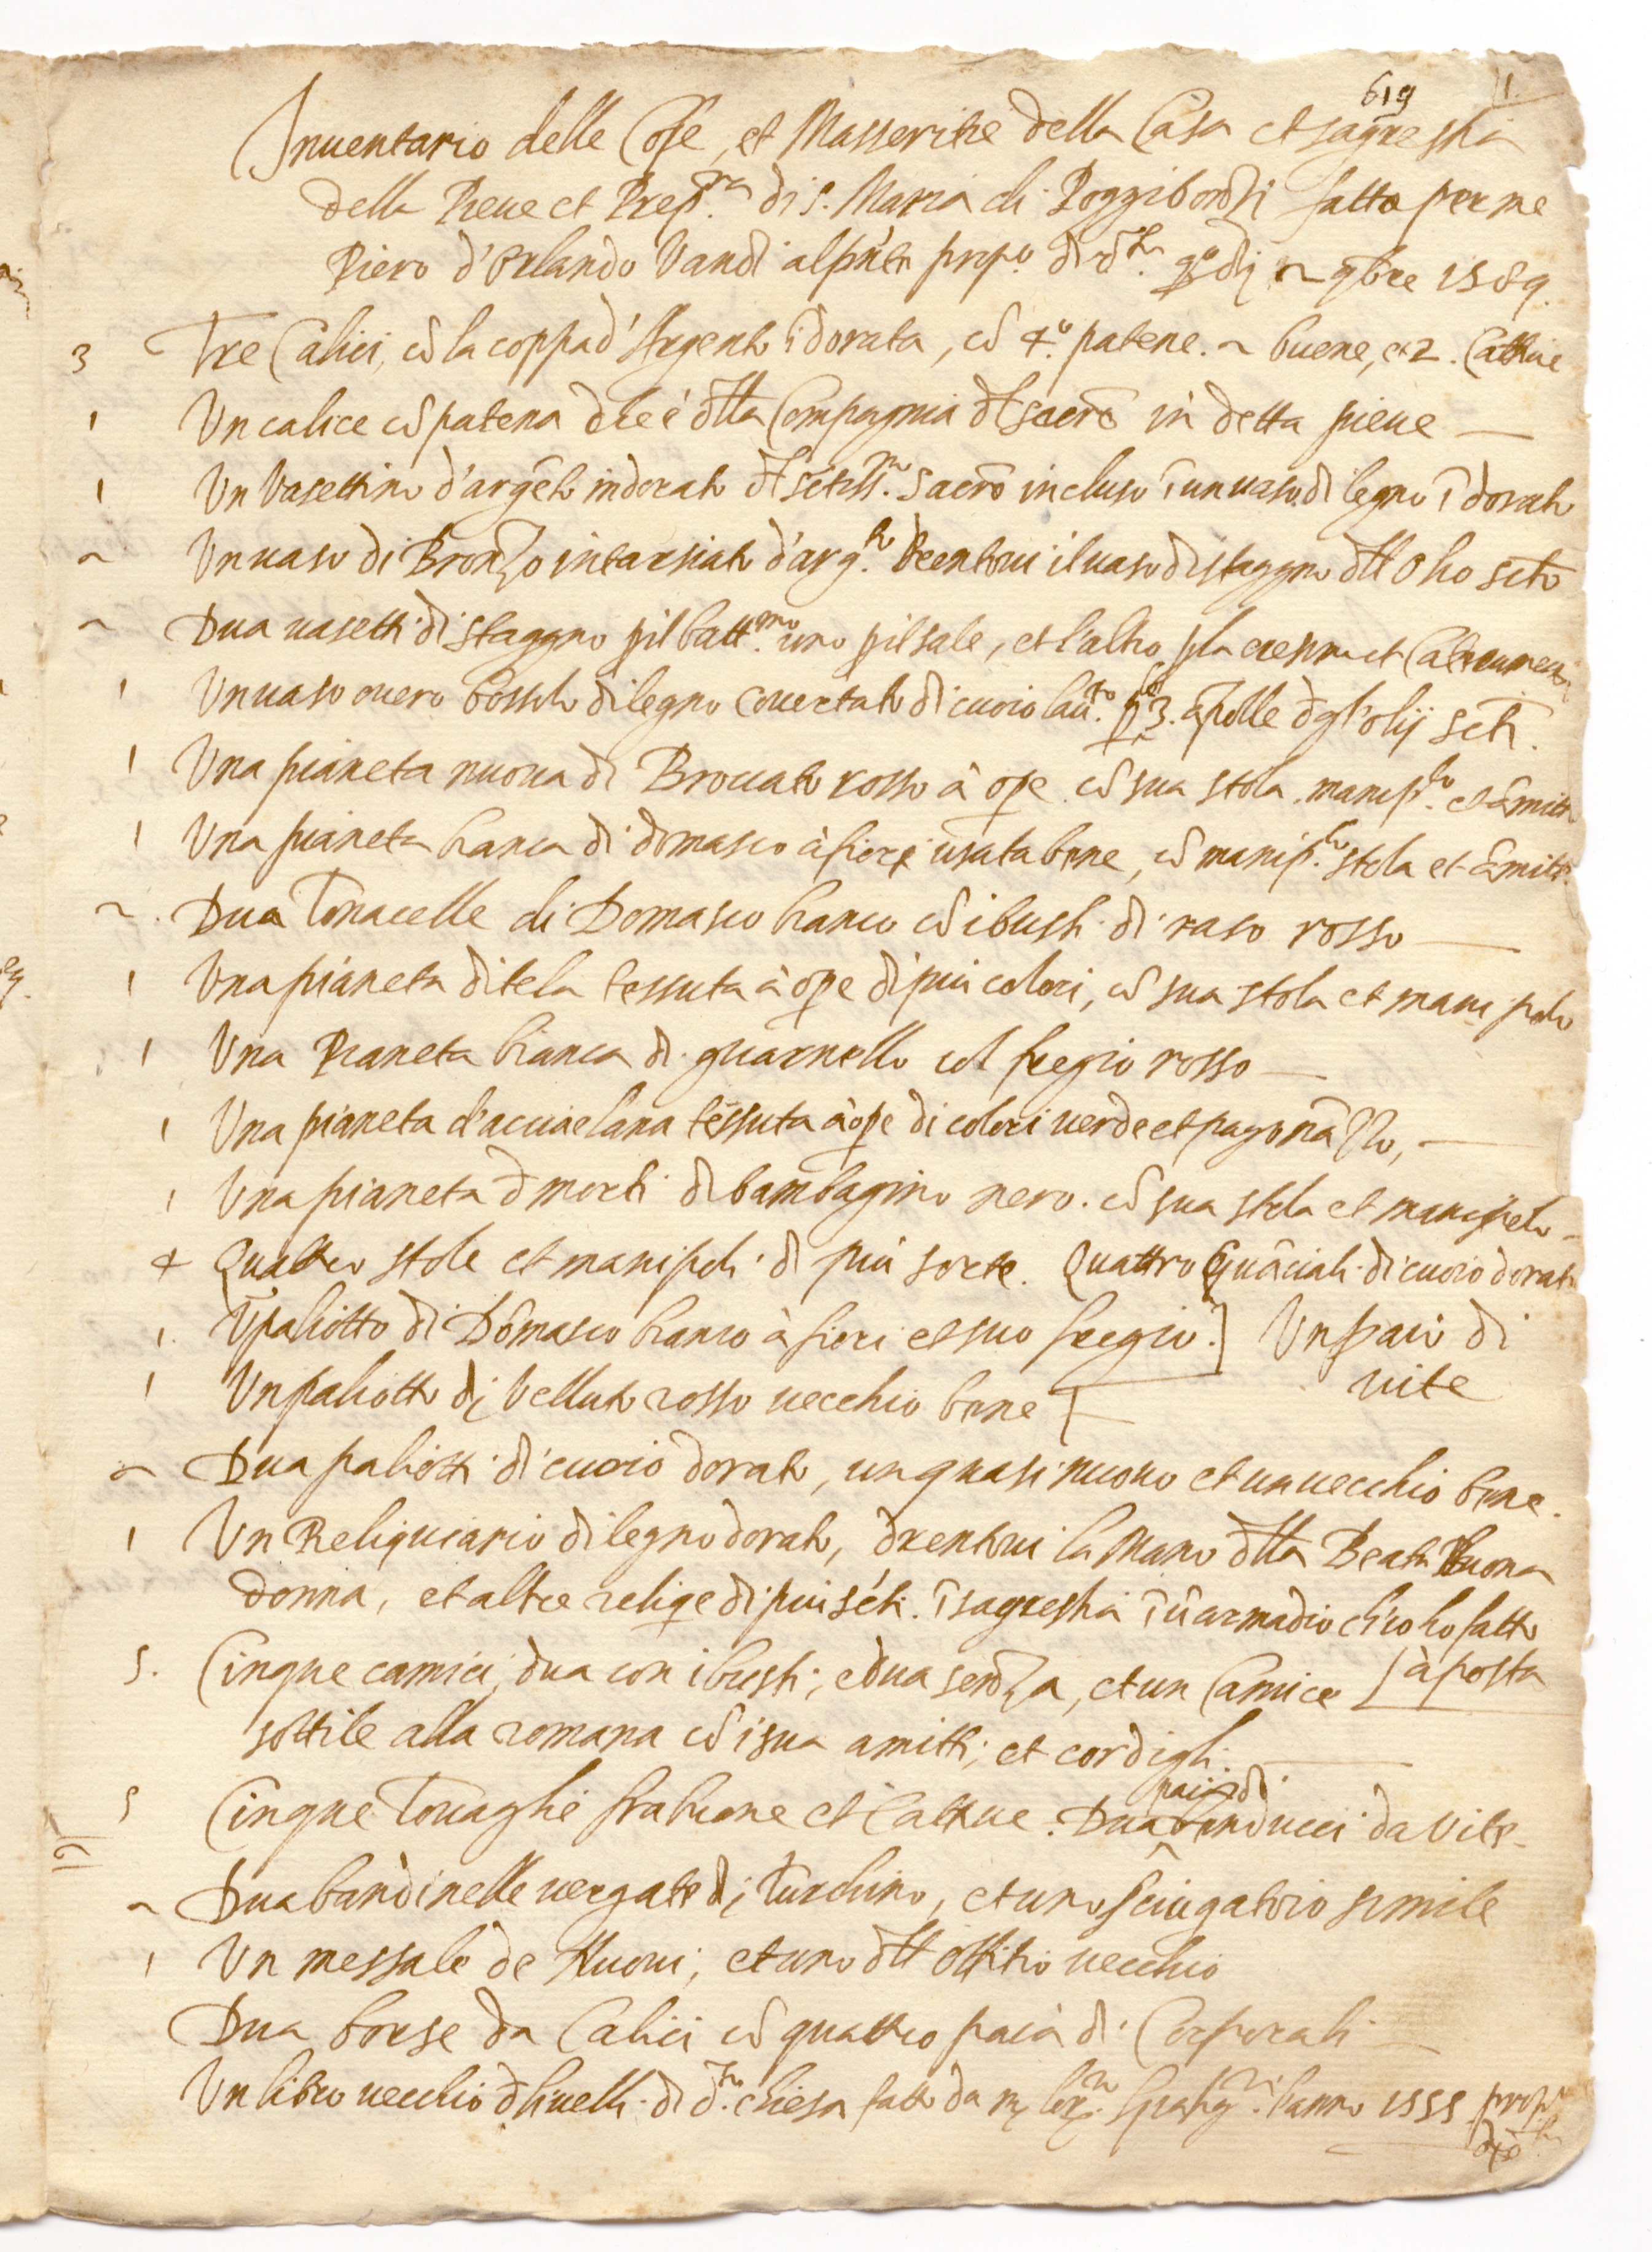 619 11
Inuentario delle Cose, et Masseritie della Casa et sagrestia
della Pieue et Prep.ra di S. Maria di Poggibonzi fatto per me
Piero d'Orlando Vandi al pñte prep.o di d.ta q.o dì 2 9bre 1589.
3 Tre Calici, cõ la coppa d'Argento ĩdorata, cõ 4.o patene. 2 buone, et 2. Cattiue
1 Un calice cõ patena che è dlla Compagnia dl sacrõ in detta pieue —
1 Un Vasettino d'argẽto indorato dl sãtiss.mo Sacrõ incluso ĩ un uaso di legno ĩdorato
2 Un uaso di Bronzo intarsiato d'arg.to drentoui il uaso di staggno dll'Olio sãto
2 Dua uasetti di staggno p il batt.mo uno p il sale, et l'altro p la cresma et
1 Un uaso ouero bossolo di legno couertato di cuoio lau.to p 3. āpolle dgl'olij sãti.
1 Una pianeta nuoua di Broccato rosso à ope cõ sua stola. manip.lo et Amitto
1 Una pianeta bianca di domasco à fiori usata bene, cõ manip.lo stola et Amitto
2 Dua Tonacelle di Domasco bianco cõ i busti di raso rosso —
1 Una pianeta di tela tessuta à ope di più colori, cõ sua stola et manipolo
1 Una Pianeta bianca di guarnello col fregio rosso —
1 Una pianeta d'accia e lana tessuta à ope di colori uerde et pagonãzzo, —
1 Una pianeta d morti di bambagino nero. cõ sua stola et manipolo —
4 Quattro stole et manipoli di più sorte. Quattro Guãciali di cuoio dorato
1. Ũ paliotto di Domasco bianco à fiori et suo fregio.] Un paio di
1 Un paliotto di Velluto rosso uecchio bene uite
2 Dua paliotti di cuoio dorato, un quasi nuouo et un uecchio bene.
1 Un Reliquiario di legno dorato, drentoui la Mano dlla Beata Buona
donna, et altre reliqe di più sãti. ĩ sagrestia ĩ ũ armadio ch'io ho fatto
5. Cinque camici, dua con i busti, e dua senza, et un Camice [à posta
sottile alla romana cõ i sua amitti, et cordigli. —
paia di
5 Cinque Touaghe fra buone et Cattiue. Dua benducci da Vite
2 Dua bandinelle uergate di Turchino, et uno sciugatoio simile
1 Un messale de Nuoui, et uno dll'offitio uecchio
Dua borse da Calici cõ quattro paia di Corporali —
Un libro uecchio d liuelli di d.ta chiesa fatto da l'anno 1555 prop.to